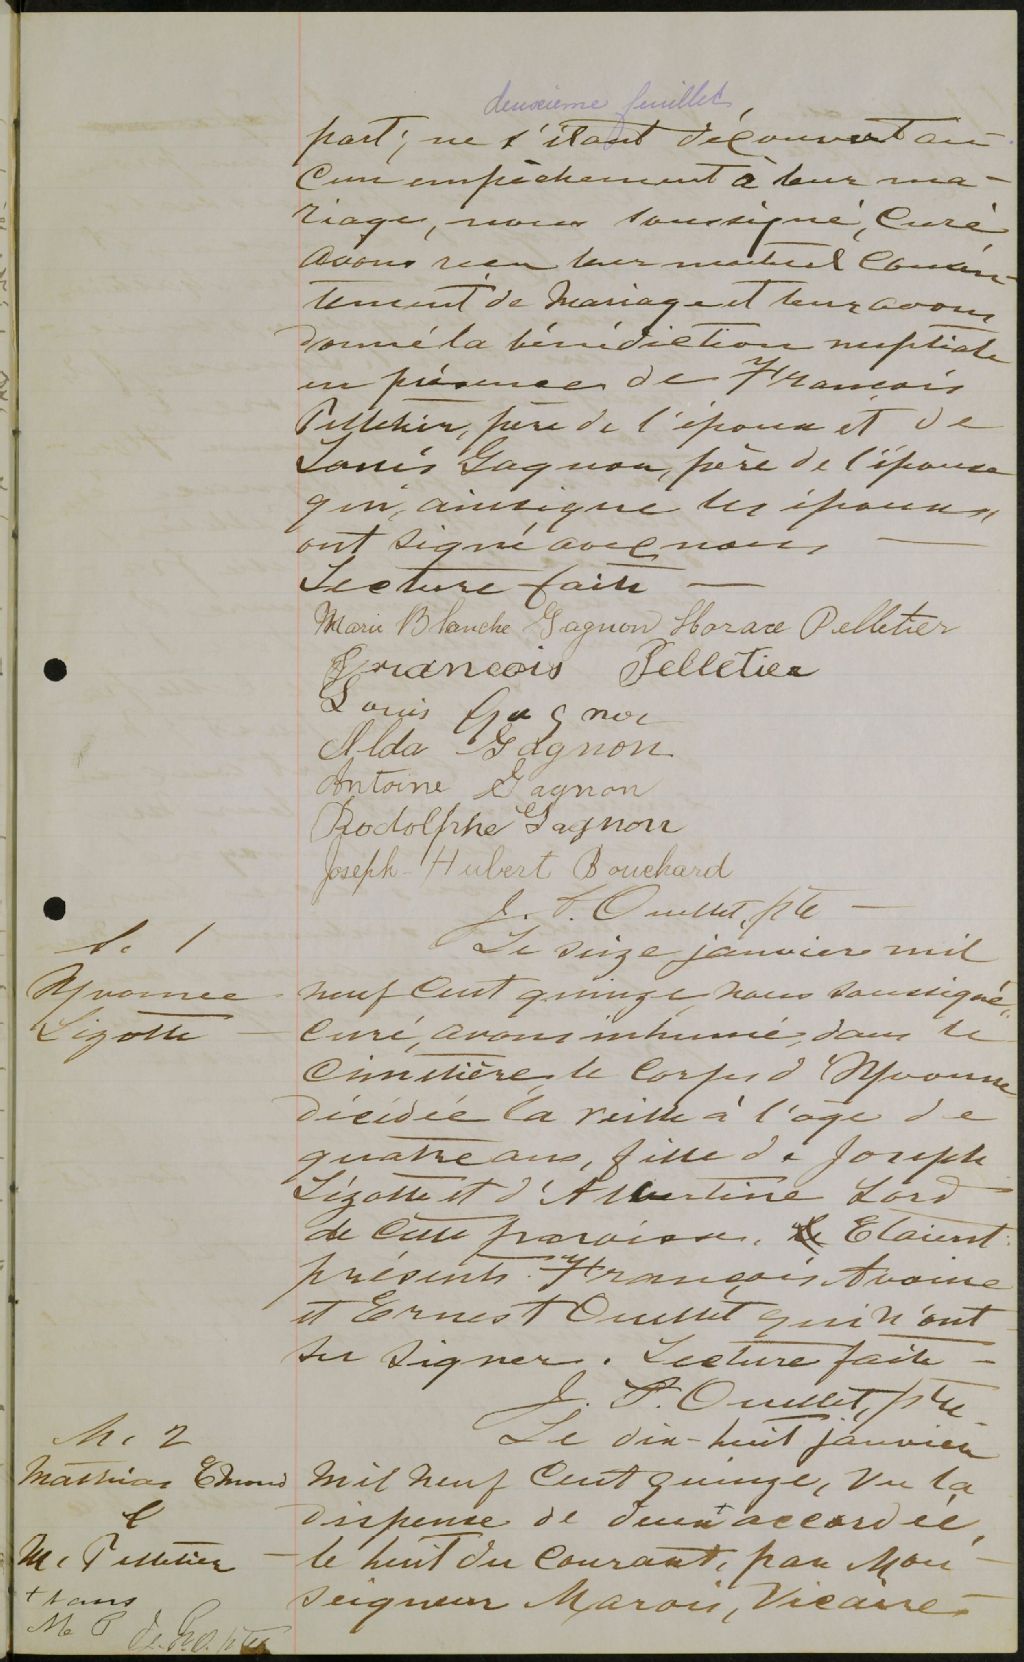 deuxième feuillet
part; ne s'étant découvert au-
cun empêchement à leur ma-
riage, nous soussigné, Curé
avons reçu leur mutuel Consen-
tement de Mariage et leur avons
donné la bénédiction nuptiale
en présence de François
Pelletier, père de l'époux et de
Louis Gagnon, père de l'épouse
qui, ainsi que les époux,
ont signé avec nous —
Lecture faite —
Marie Blanche Gagnon Horace Pelletier
François Pelletier
Louis Gagnon
Alda Gagnon
Antoine Gagnon
Rodolphe Gagnon
Joseph-Hubert Bouchard
J. P. Ouellet, ptre —
S. 1
Yvonne
Lizotte
Le seize janvier mil
neuf Cent quinze, nous soussigné,
Curé, avons inhumé, dans le
Cimetière, le Corps d'Yvonne
décédée la veille à l'âge de
quatre ans, fille de Joseph
Lizotte et d'Albertine Lord
de cette paroisse. Etaient
présents François Avoine
et Ernest Ouellet qui n'ont
su signer. Lecture faite —
J. P. Ouellet, ptre
M. 2
Mathias Emond
&
M. Pelletier
+ bans
M. P
Le dix-huit janvier
mil neuf Cent quinze, Vu la
dispense de deux + accordée,
le huit du Courant, par Mon-
seigneur Marois, Vicaire-